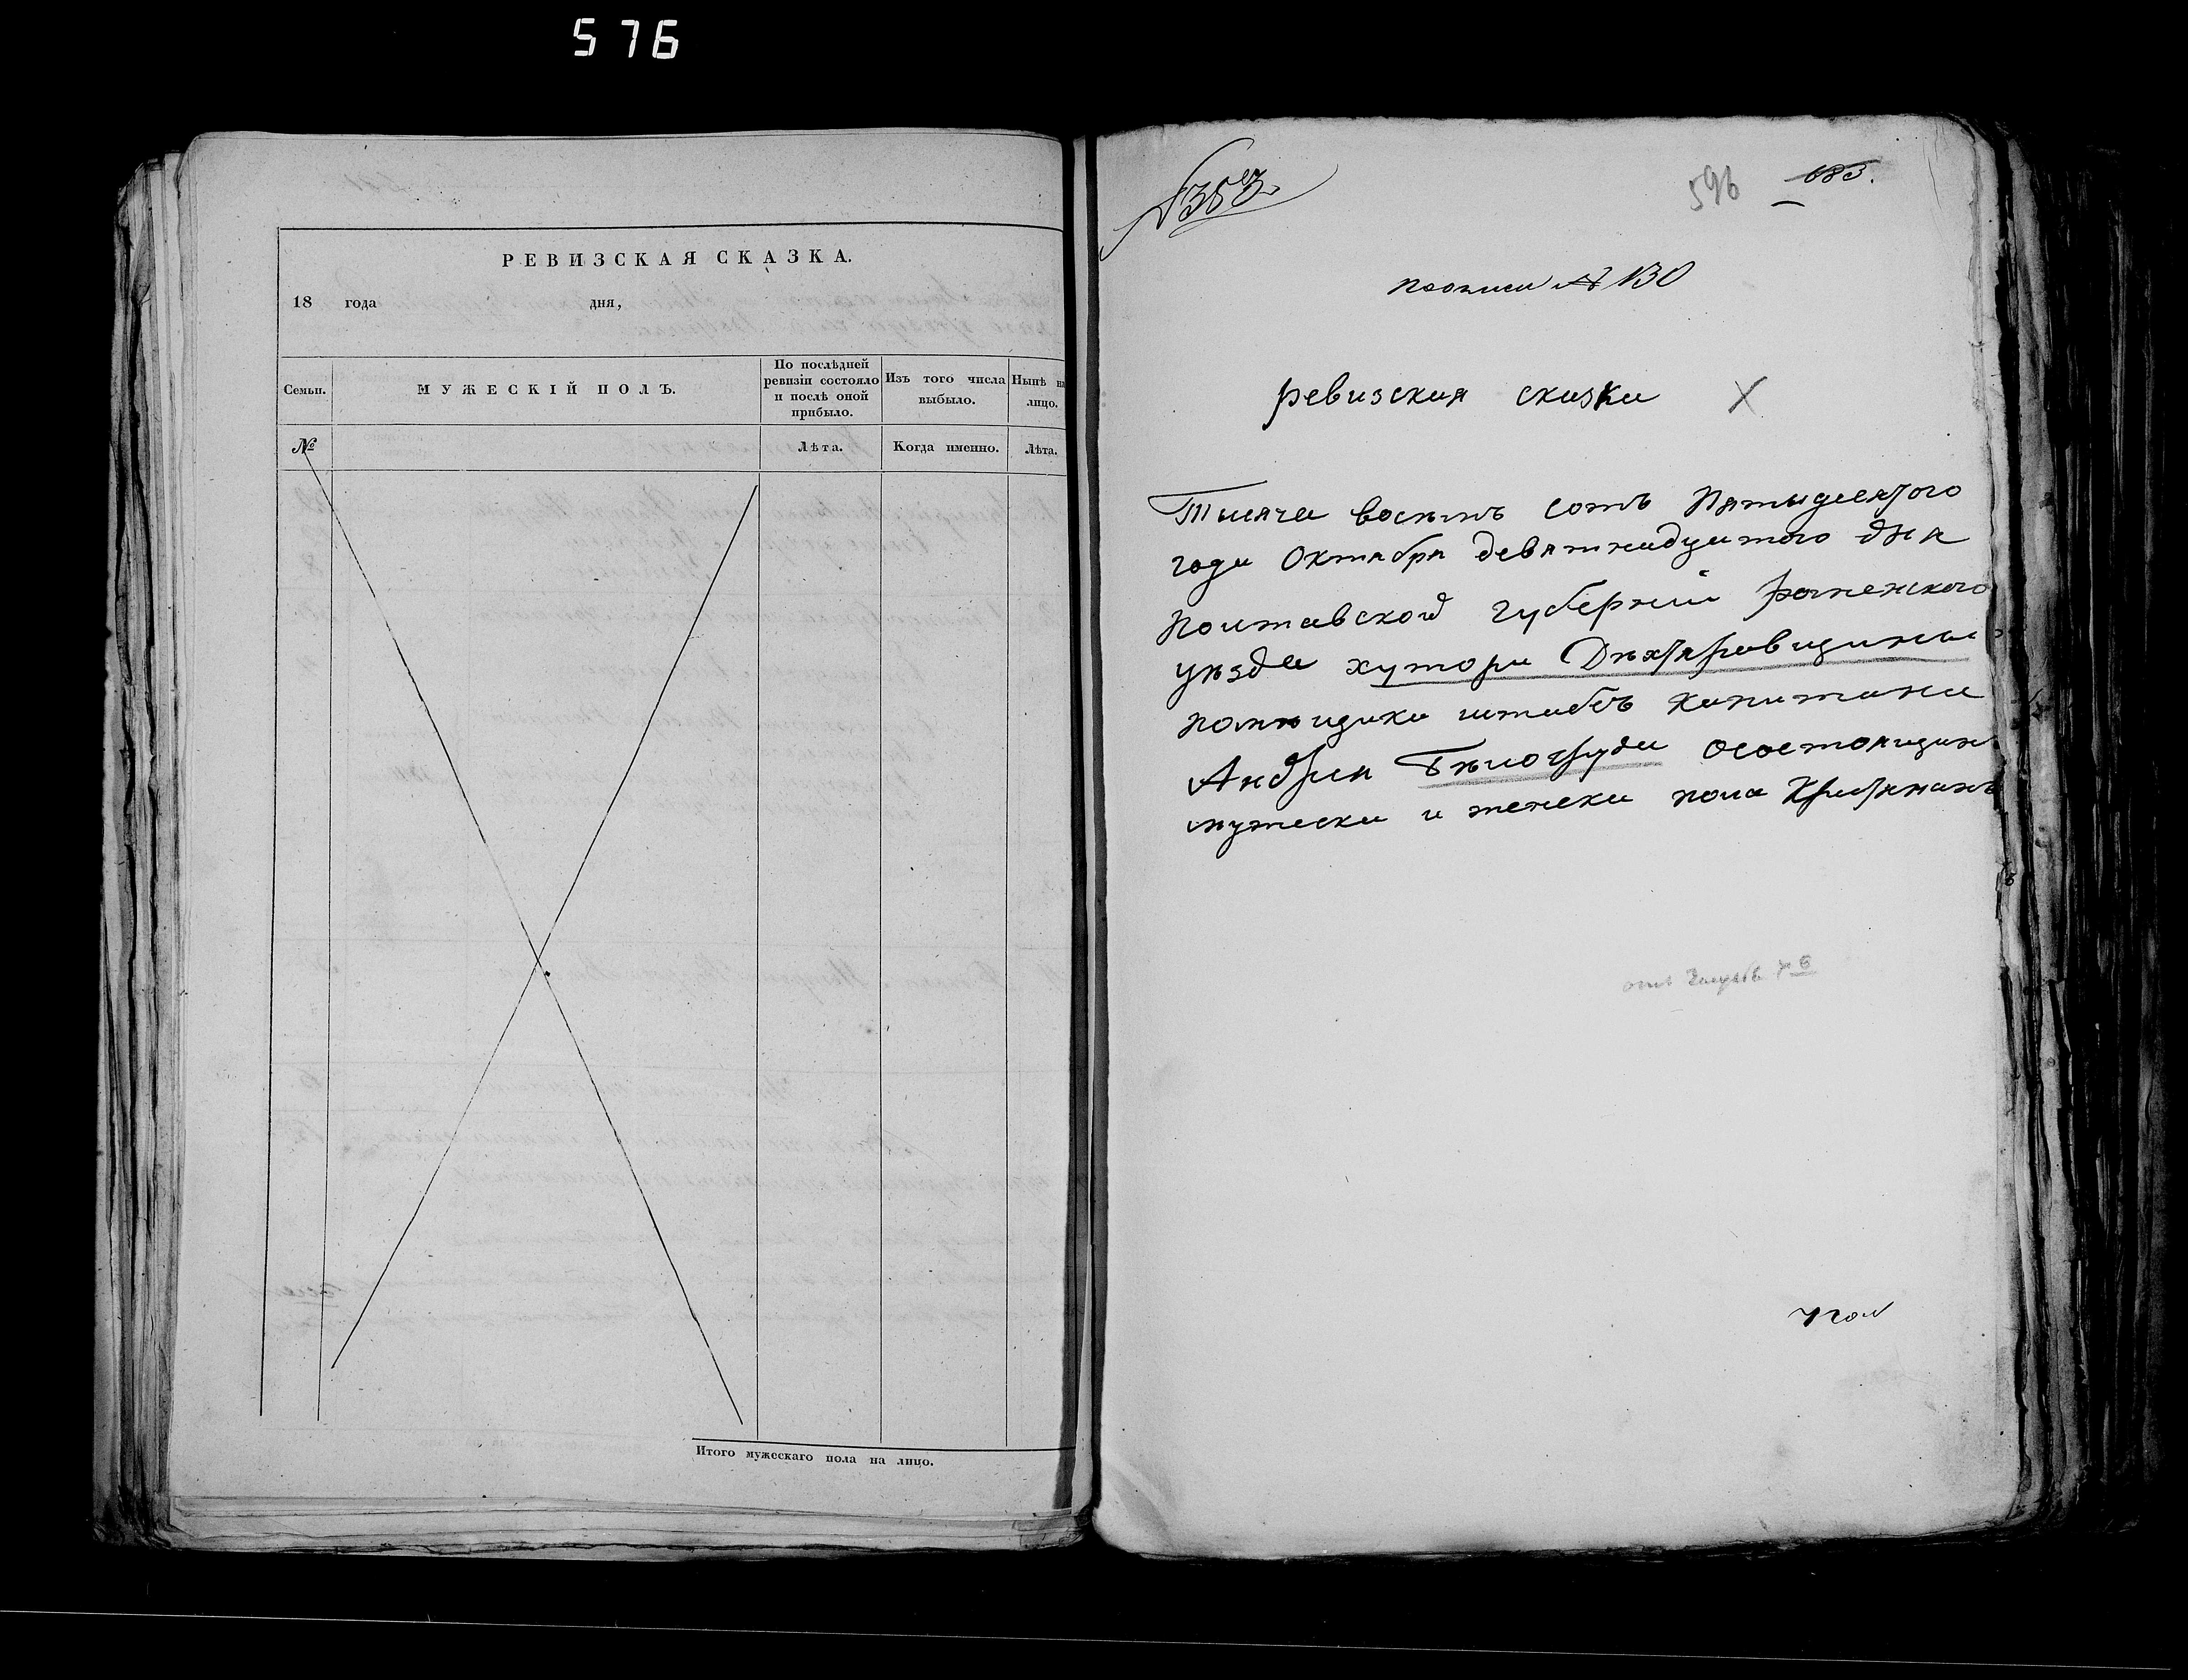 576
РЕВИЗСКАЯ СКАЗКА.
18 года дня,
Семьи.
МУЖЕСКІЙ ПОЛЪ.
По послѣдней ревизіи состояло и послѣ оной прибыло.
Изъ того числа выбыло.
Нынѣ на лицо.
№
Лѣта.
Когда именно.
Лѣта.
Итого мужескаго пола на лицо.
596 683.
поописи № 130
ревизская сказка
Тысяча восѣмъ сотъ Пятыдесятого
года Октября девятнадцатого дня
Полтавской губерніи роменского
уѣзда хутора Дѣхтяровщина
помѣщика штабсъ капитана
Андрея Бѣлогруда осостоящих
мужеска и женска пола Крестянахъ